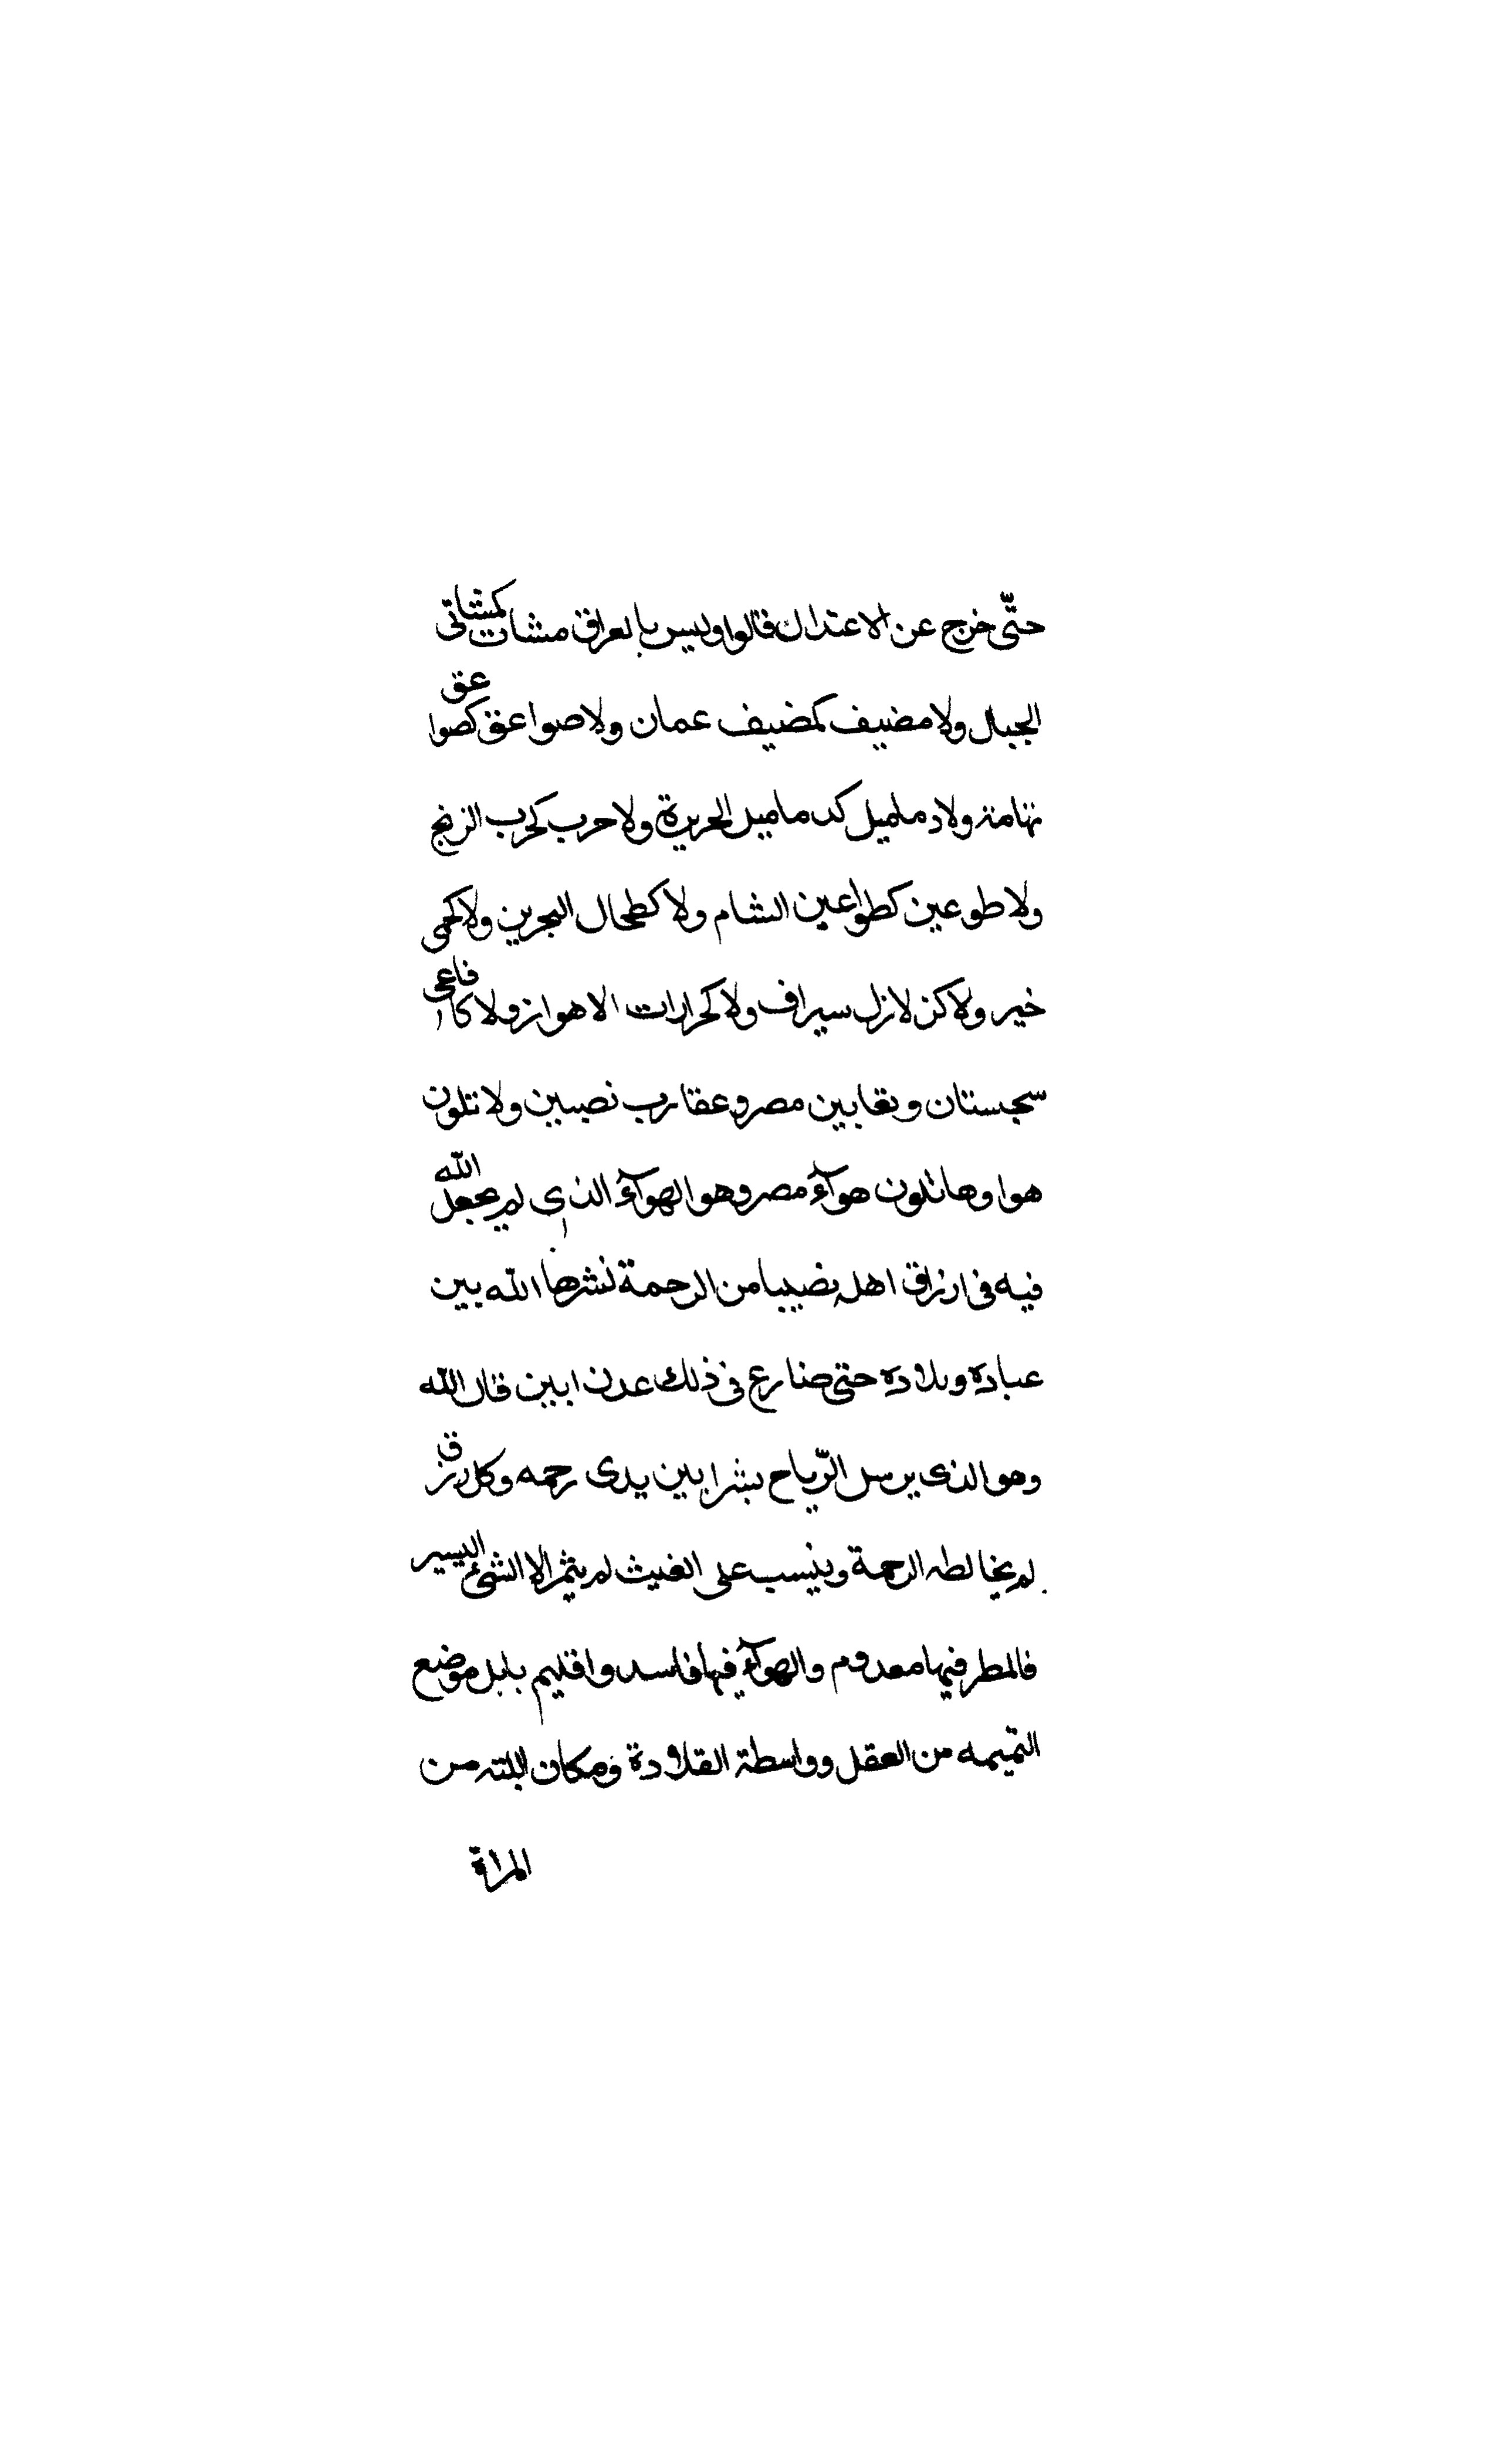 حتّى خرج عن الاعتدال قالوا وليس بالعراق مشات كمشاتى
الجبال ولا مضيف كمضيف عمان ولا صواعق كصواعق
تهامة ولا دماميل كدماميل الجزيرة ولا حرب كحرب الزنج
ولا طوعين كطواعين الشام ولا كطحال البحرين ولا كحمى
خيبر ولا كزلازل سيراف ولا كحرارات الاهواز ولا كافاعى
سجستان وثعابين مصر وعقارب نصيبين ولا تلون
هواوها تلون هوآء مصر وهو الهوآء الذى لم يجعل الله
فيه فى ارزاق اهله نصيبا من الرحمة نشرها الله بين
عباده وبلاده حتى ضارع فى ذلك عدن ابين قال الله
وهو الذى يرسل الرّياح بشرا بين يدى رحمه وكل رزق
لم يخالطه الرحمة وينسب على الغيث لم يثمر الا الشئ اليسير
فالمطر فيها معدوم والهوآء فيها فاسد واقليم بابل موضع
التميمه من العقل وواسطة القلادة ومكان اللبته من
المراة